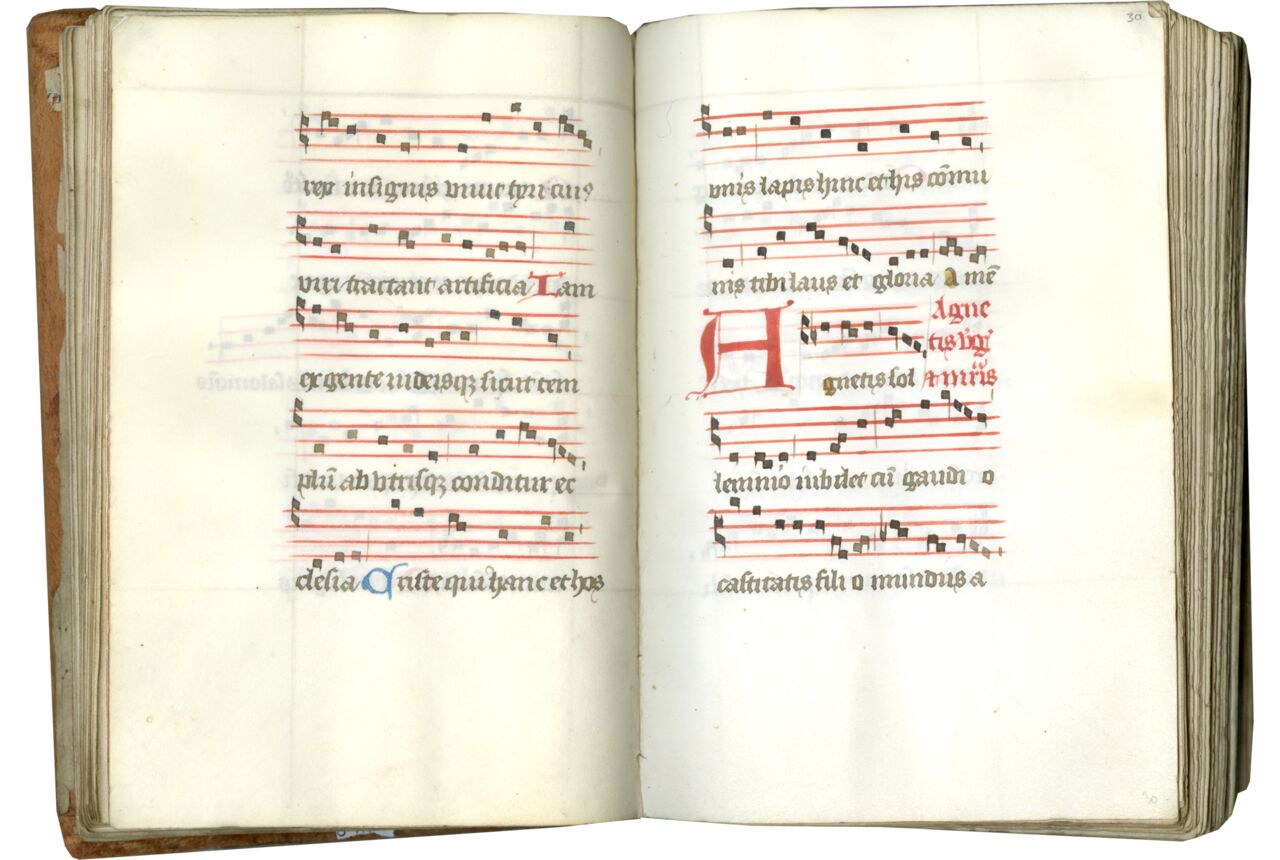 rex insignis viuit tyri cui⁹
viri tractant artificia Tam
ex gente iudeisqꝫ sicut tem
plū ab vtrisqꝫ conditur ec
clesia Criste qui hanc et hos
30
vnis lapis hinc et his cōmu
nis tibi laus et gloria A mē
Agne
tis v̄ḡ
A gnetis sol
lempnio iubilet cū gaudi o
castitatis fili o mundus a
30